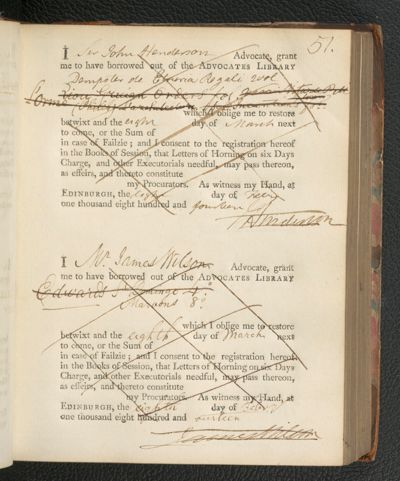 51.
I Sir John Henderson Advocate, grant
me to have borrowed out of the ADVOCATES LIBRARY
Dempster de Etruria Regali 2 vol
which I oblige me to restore
betwixt and the eighth day of March next
to come, or the Sum of
in case of Failzie; and I consent to the registration hereof
in the Books of Session, that Letters of Horning on six Days
Charge, and other Executorials needful, may pass thereon,
as effeirs, and thereto constitute
my Procurators. As witness my Hand, at
EDINBURGH, the eighth day of
one thousand eight hundred and fourteen
I Mr. James Wilson Advocate, grant
me to have borrowed out of the ADVOCATES LIBRARY
Edwards St. Domingo 4o
Maroons 8o
which I oblige me to restore
betwixt and the eighth day of March next
to come, or the Sum of
in case of Failzie; and I consent to the registration hereof
in the Books of Session, that Letters of Horning on six Days
Charge, and other Executorials needful, may pass thereon,
as effeirs, and thereto constitute
my Procurators. As witness my Hand, at
EDINBURGH, the eighth day of
one thousand eight hundred and
James Wilson